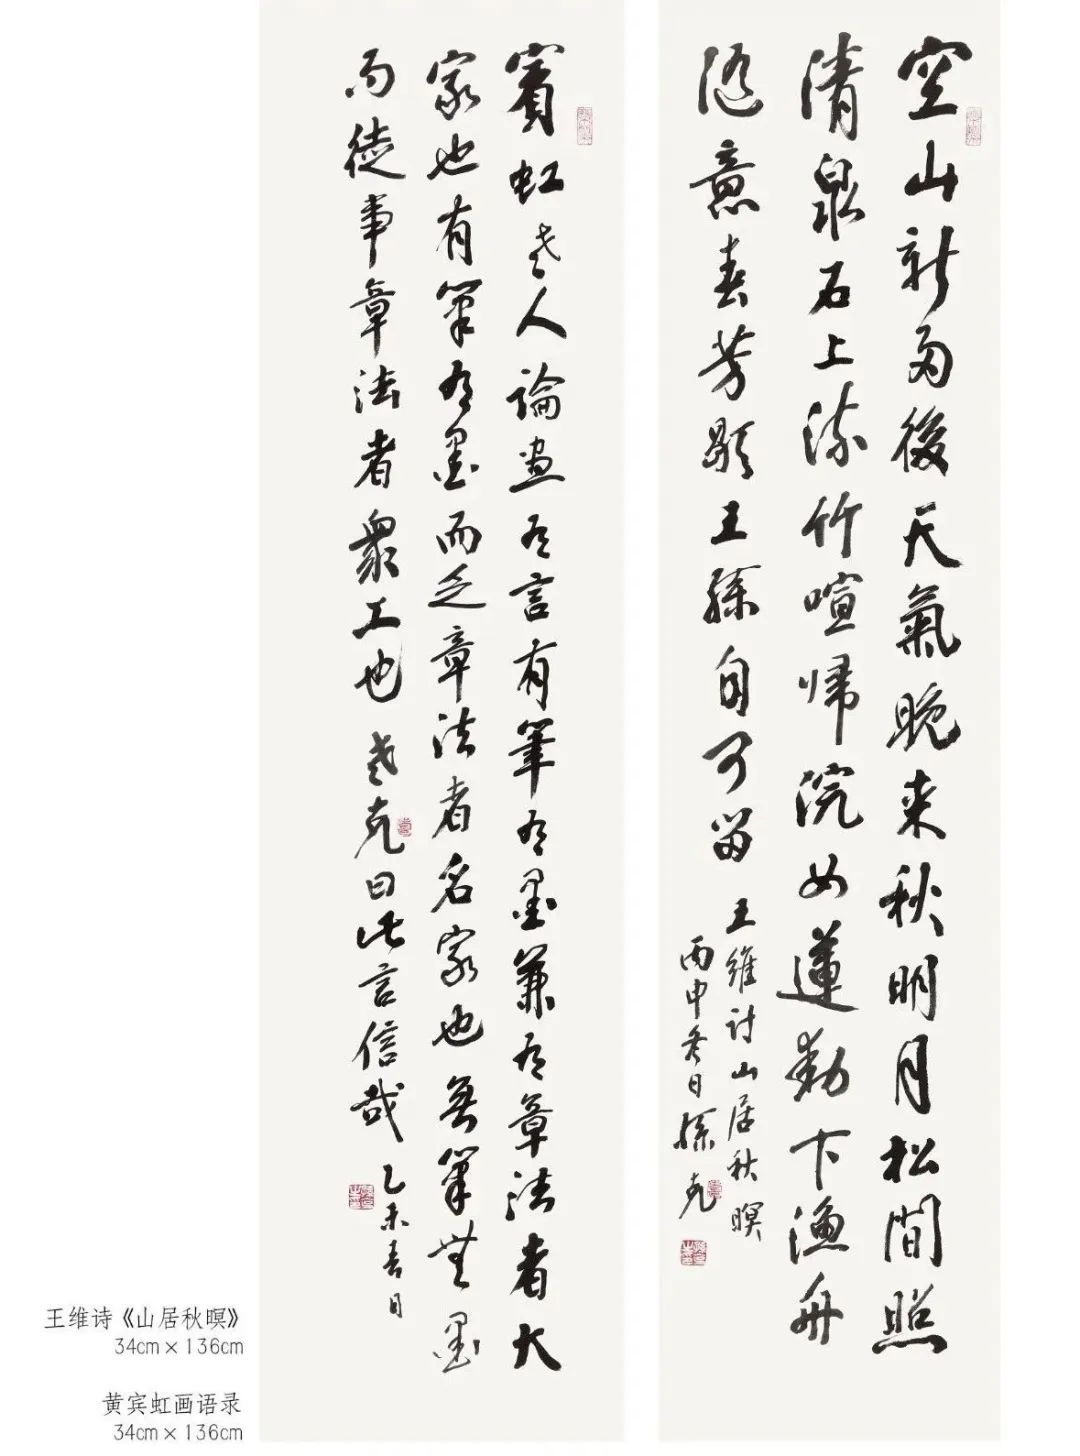 空山新雨後天氣晚来秋明月松間照
清泉石上流竹喧帰浣女蓮動下漁舟
随意春芳歇王孫自可留
王維诗山居秋暝
丙申冬日孫克
賓虹老人論画有言有筆有墨兼有章法者大
家也有筆有墨而乏章法者名家也無筆無墨
而徒事章法者衆工也老克曰此言信哉乙未春日
王维诗《山居秋暝》
34cm×136cm
黄宾虹画语录
34cm×136cm